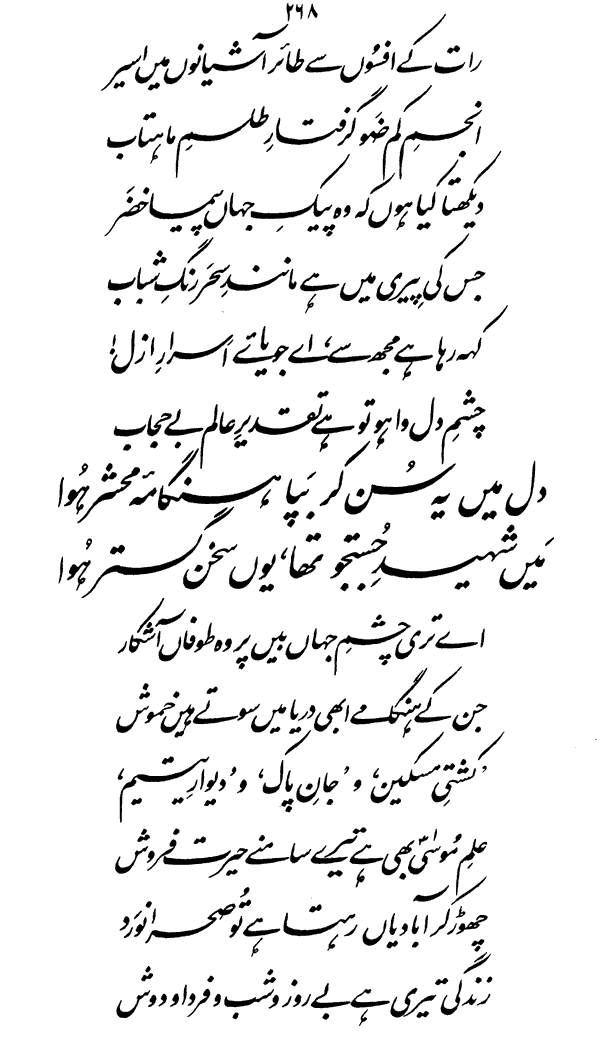 ۲۶۸
رات کے افسُوں سے طائر آشیانوں میں اسیر
انجمِ کم ضَو گرفتارِ طلسمِ ماہتاب
دیکھتا کیا ہوں کہ وہ پیکِ جہاں پیما خضَر
جس کی پِیری میں ہے مانندِ سحَر رنگِ شباب
کہہ رہا ہے مجھ سے، اے جویائے اَسرارِ ازل!
چشمِ دل وا ہو تو ہے تقدیرِ عالم بے حجاب
دل میں یہ سُن کر بَپا ہنگامۂ محشر ہُوا
مَیں شہیدِ جُستجو تھا، یوں سخن گستر ہُوا
اے تری چشمِ جہاں بیں پر وہ طوفاں آشکار
جن کے ہنگامے ابھی دریا میں سوتے ہیں خموش
’کشتیِ مسکین، و ’جانِ پاک، و ’دیوارِ یتیم،
علمِ مُوسٰیؑ بھی ہے تیرے سامنے حیرت فروش
چھوڑ کر آبادیاں رہتا ہے تُو صحرا نورَد
زندگی تیری ہے بے روز و شب و فردا و دوش